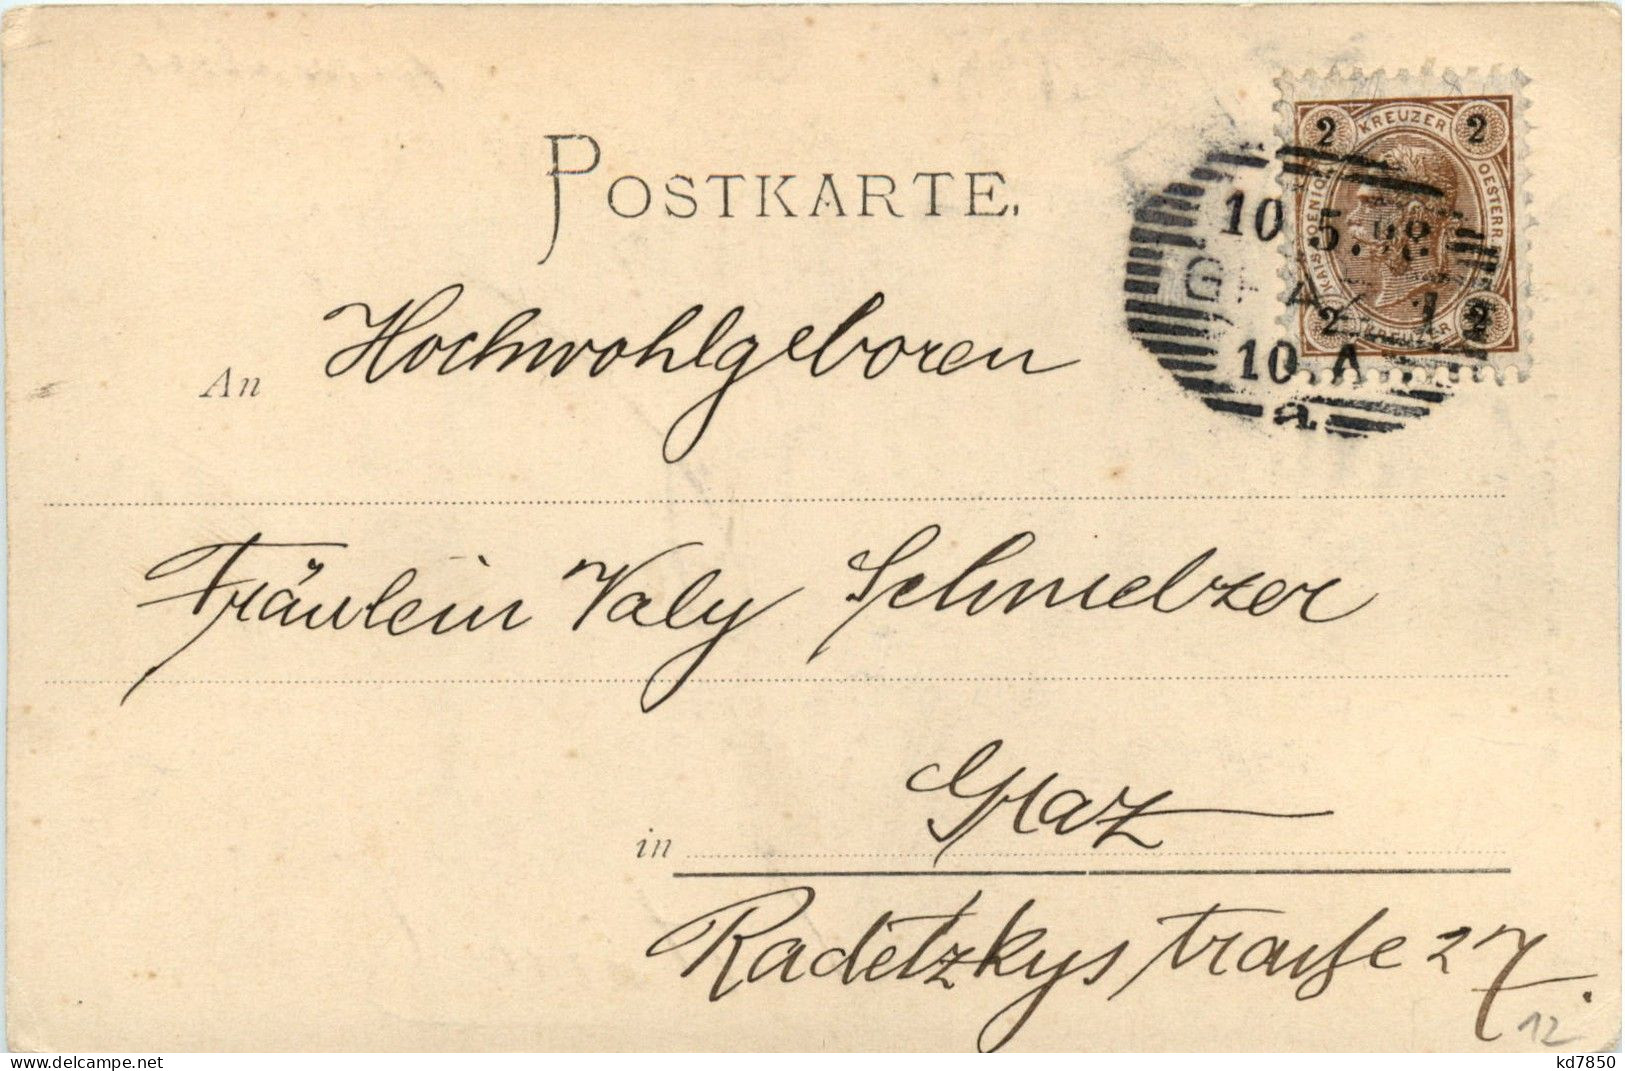 POSTKARTE.
2 KREUZER 2
KAIS. KOENIGL. OESTERR.
10.5.98
GRAZ 1
2 KREUZER 2
10 A
a
An Hochwohlgeboren
Fräulein Valy Schmelzer
in Graz
Radetzkystraße 27.
12
www.delcampe.net
kd7850